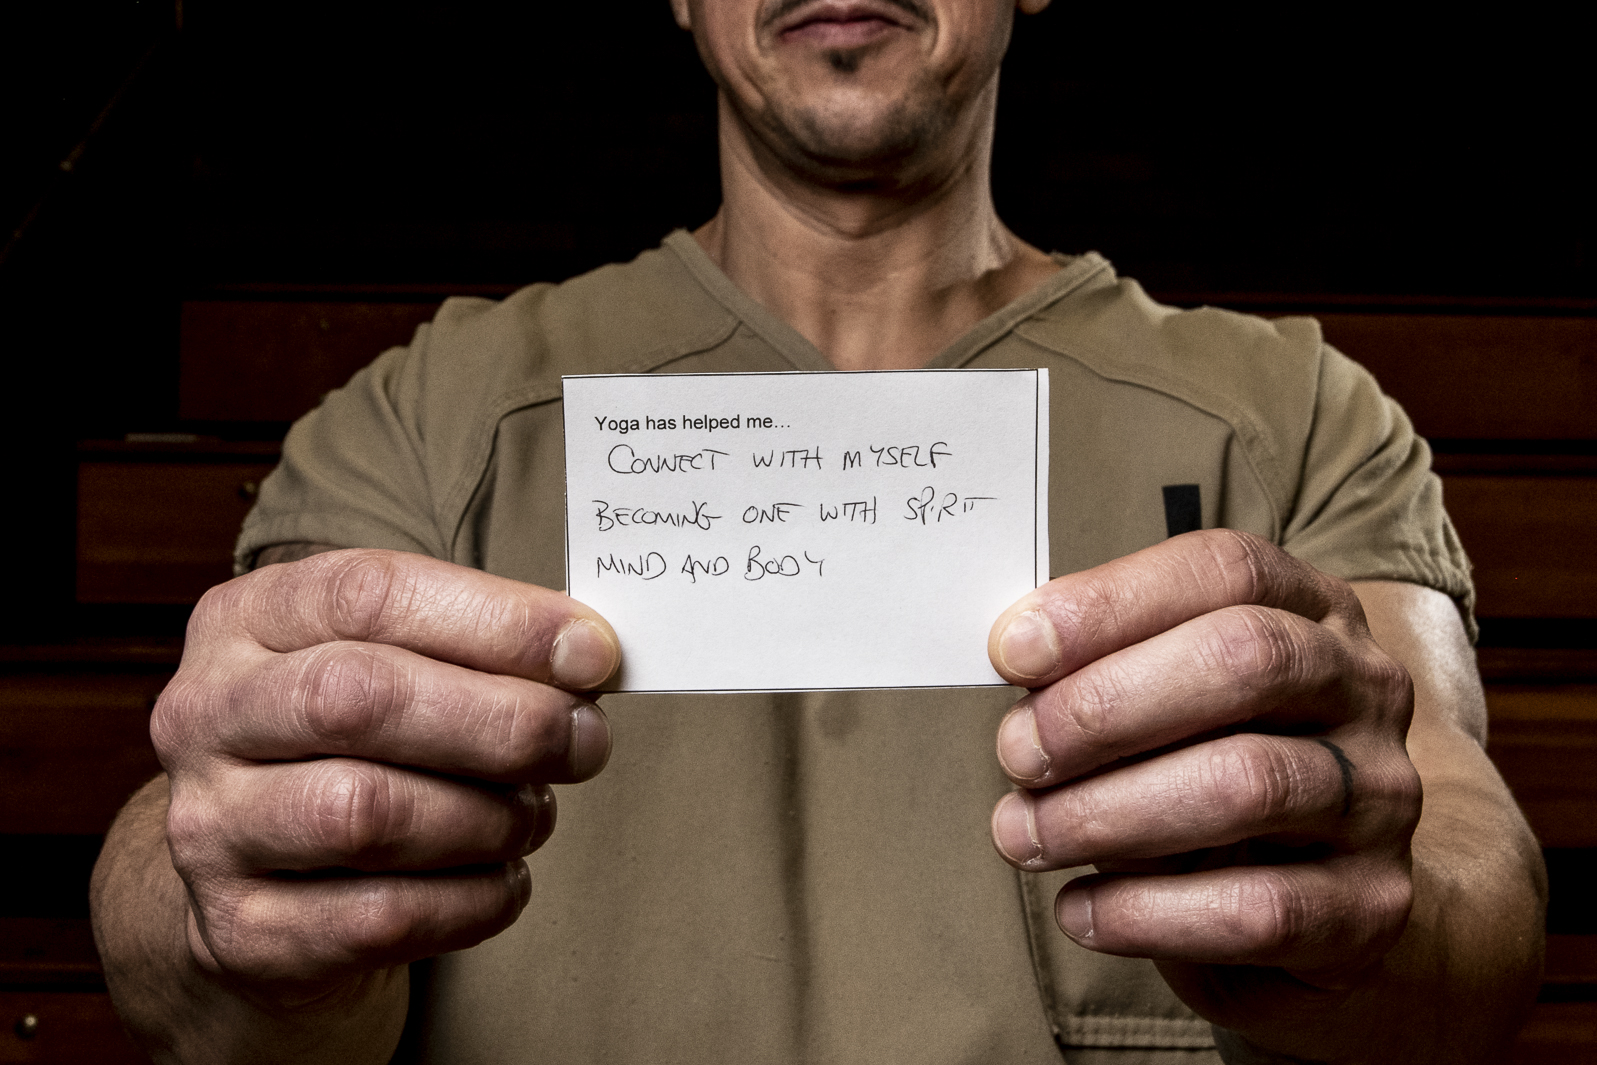 Yoga has helped me...
CONNECT WITH MYSELF
BECOMING ONE WITH SPIRIT
MIND AND BODY